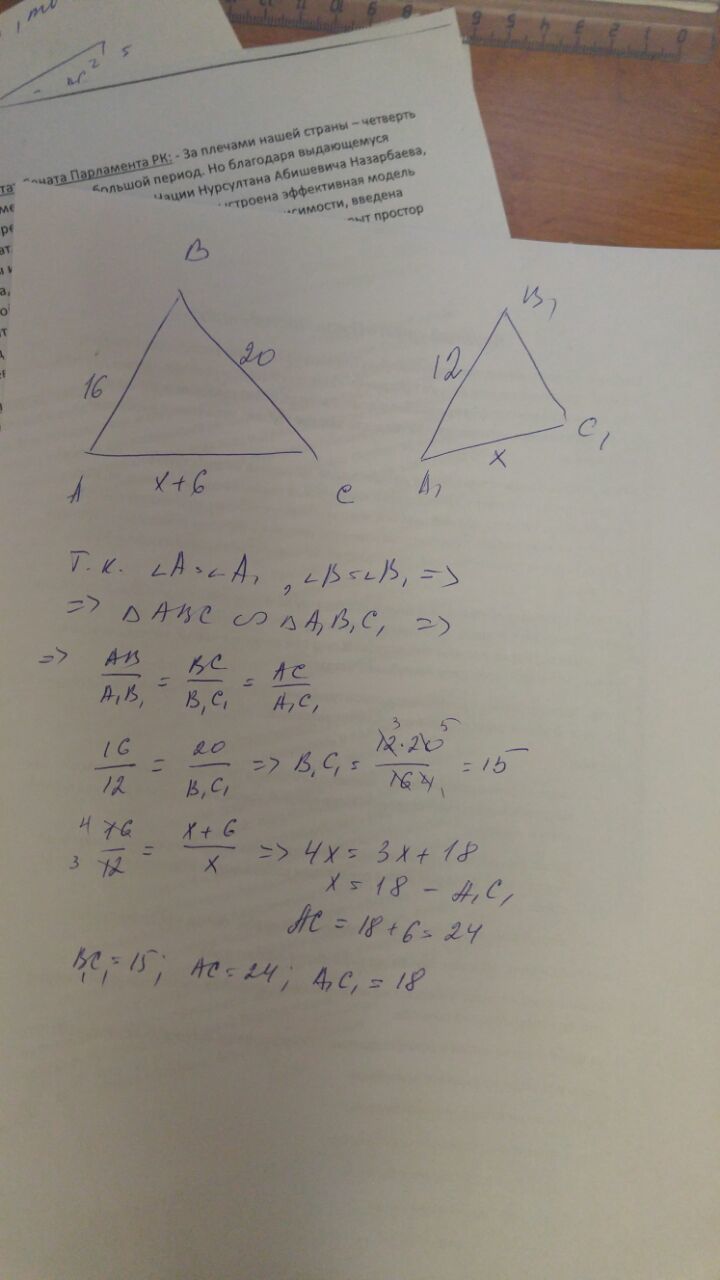 Сената Парламента РК: - За плечами нашей страны – четверть
большой период. Но благодаря выдающемуся
Нации Нурсултана Абишевича Назарбаева,
эффективная модель
введена
простор
B
16
20
A
x+6
C
B₁
12
C₁
x
A₁
Т.к. ∠A=∠A₁, ∠B=∠B₁ =>
=> △ABC ∽ △A₁B₁C₁ =>
=> AB/A₁B₁ = BC/B₁C₁ = AC/A₁C₁
16/12 = 20/B₁C₁ => B₁C₁ = 12·20/16 = 15
16/12 = x+6/x => 4x = 3x + 18
x = 18 – A₁C₁
AC = 18+6 = 24
B₁C₁ = 15; AC = 24; A₁C₁ = 18